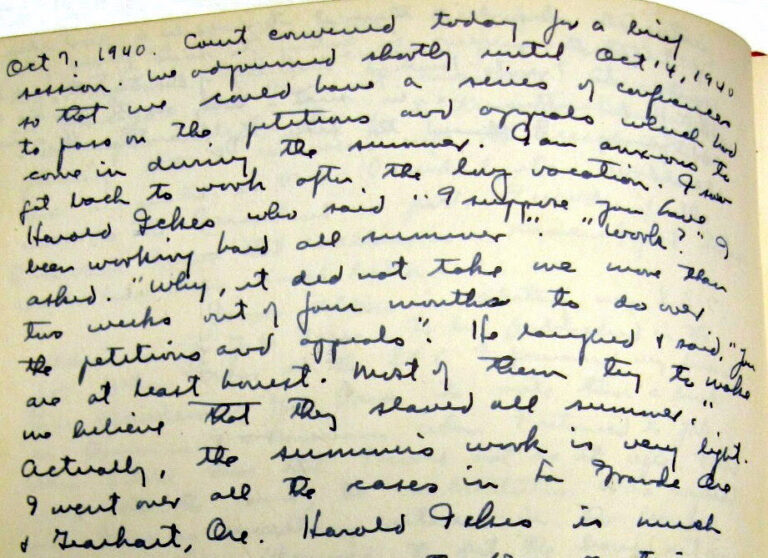 Oct 7, 1940. Court convened today for a brief
session. We adjourned shortly until Oct 14, 1940
so that we could have a series of conferences
to pass on the petitions and appeals which had
come in during the summer. I am anxious to
get back to work after the long vacation. I saw
Harold Ickes who said "I suppose you have
been working hard all summer". "Work?" I
asked. "Why, it did not take me more than
two weeks out of four months to do over
the petitions and appeals". He laughed & said, "You
are at least honest. Most of them try to make
me believe that they slaved all summer."
Actually, the summer's work is very light.
I went over all the cases in La Grande Ore
& Gearhart, Ore. Harold Ickes is much